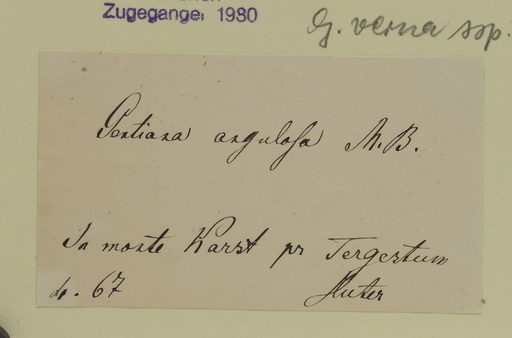 Zugegangen 1980
G. verna ssp.
Gentiana angulosa M. B.
In monte Karst pr Tergestum
4. 67 Huter